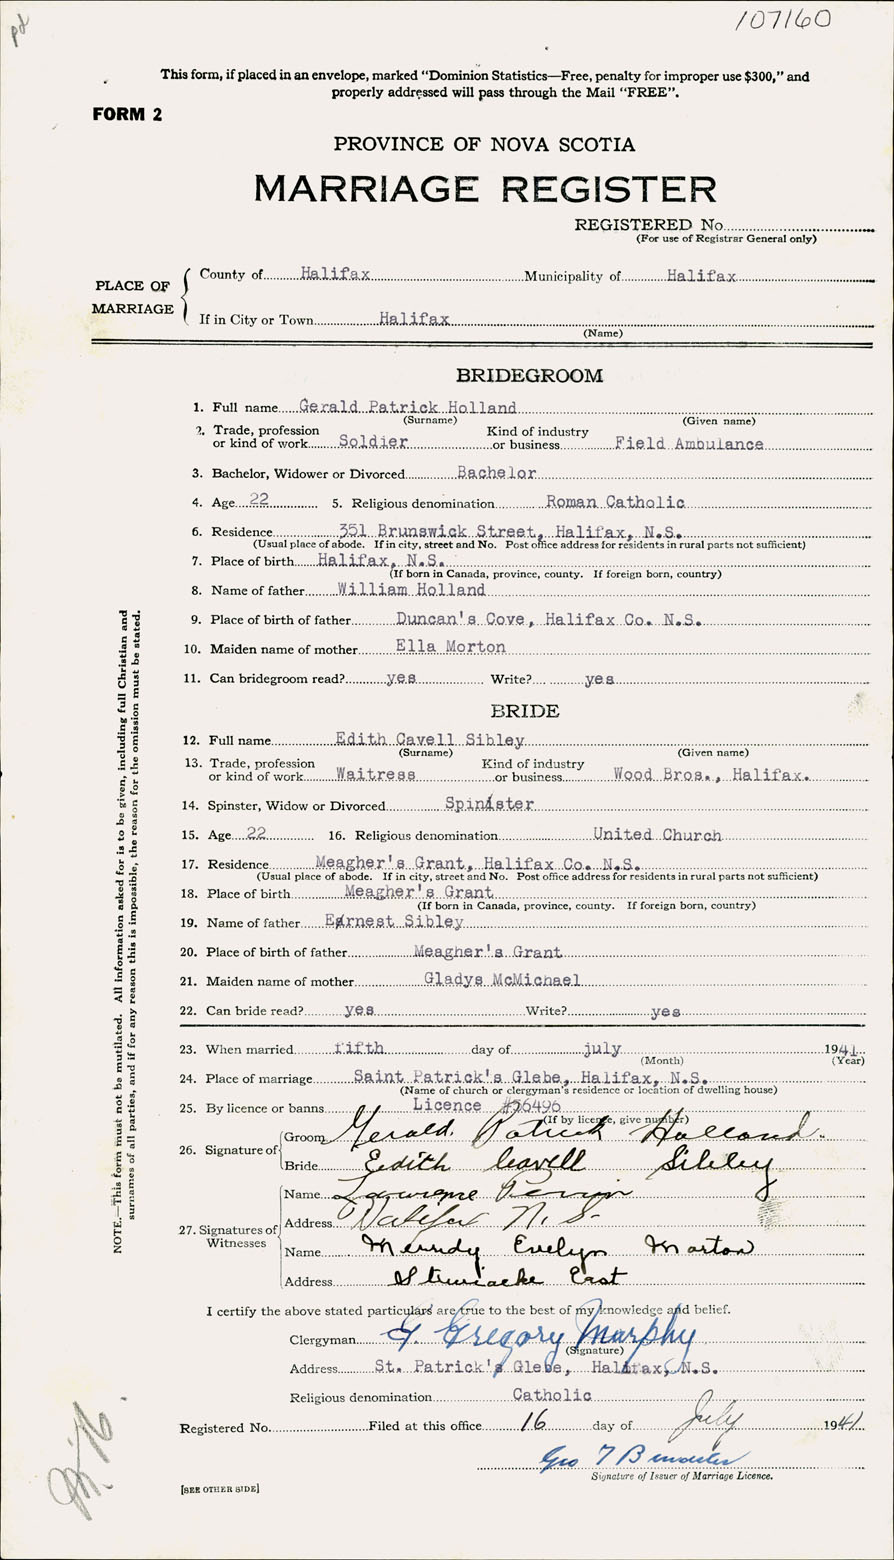 pd
107160
This form, if placed in an envelope, marked "Dominion Statistics—Free, penalty for improper use $300," and
properly addressed will pass through the Mail "FREE".
FORM 2
PROVINCE OF NOVA SCOTIA
MARRIAGE REGISTER
REGISTERED No.
(For use of Registrar General only)
PLACE OF MARRIAGE
County of Halifax Municipality of Halifax
If in City or Town Halifax
(Name)
BRIDEGROOM
1. Full name Gerald Patrick Holland
(Surname) (Given name)
2. Trade, profession Kind of industry
or kind of work Soldier or business Field Ambulance
3. Bachelor, Widower or Divorced Bachelor
4. Age 22 5. Religious denomination Roman Catholic
6. Residence 351 Brunswick Street, Halifax, N.S.
(Usual place of abode. If in city, street and No. Post office address for residents in rural parts not sufficient)
7. Place of birth Halifax, N.S.
(If born in Canada, province, county. If foreign born, country)
8. Name of father William Holland
9. Place of birth of father Duncan's Cove, Halifax Co. N.S.
10. Maiden name of mother Ella Morton
11. Can bridegroom read? yes Write? yes
BRIDE
12. Full name Edith Cavell Sibley
(Surname) (Given name)
13. Trade, profession Kind of industry
or kind of work Waitress or business Wood Bros., Halifax.
14. Spinster, Widow or Divorced Spinster
15. Age 22 16. Religious denomination United Church
17. Residence Meagher's Grant, Halifax Co. N.S.
(Usual place of abode. If in city, street and No. Post office address for residents in rural parts not sufficient)
18. Place of birth Meagher's Grant
(If born in Canada, province, county. If foreign born, country)
19. Name of father Ernest Sibley
20. Place of birth of father Meagher's Grant
21. Maiden name of mother Gladys McMichael
22. Can bride read? yes Write? yes
23. When married fifth day of july 1941
(Month) (Year)
24. Place of marriage Saint Patrick's Glebe, Halifax, N.S.
(Name of church or clergyman's residence or location of dwelling house)
25. By licence or banns Licence #56496
(If by licence, give number)
26. Signature of
Groom Gerald Patrick Holland.
Bride Edith Cavell Sibley
27. Signatures of Witnesses
Name Lawrence
Address Halifax N.S.
Name Evelyn Morton
Address Stewiacke East
I certify the above stated particulars are true to the best of my knowledge and belief.
Clergyman G. Gregory Murphy
(Signature)
Address St. Patrick's Glebe, Halifax, N.S.
Religious denomination Catholic
Registered No. Filed at this office 16 day of July 1941
Geo
Signature of Issuer of Marriage Licence.
[SEE OTHER SIDE]
NOTE.—This form must not be mutilated. All information asked for is to be given, including full Christian and
surnames of all parties, and if for any reason this is impossible, the reason for the omission must be stated.